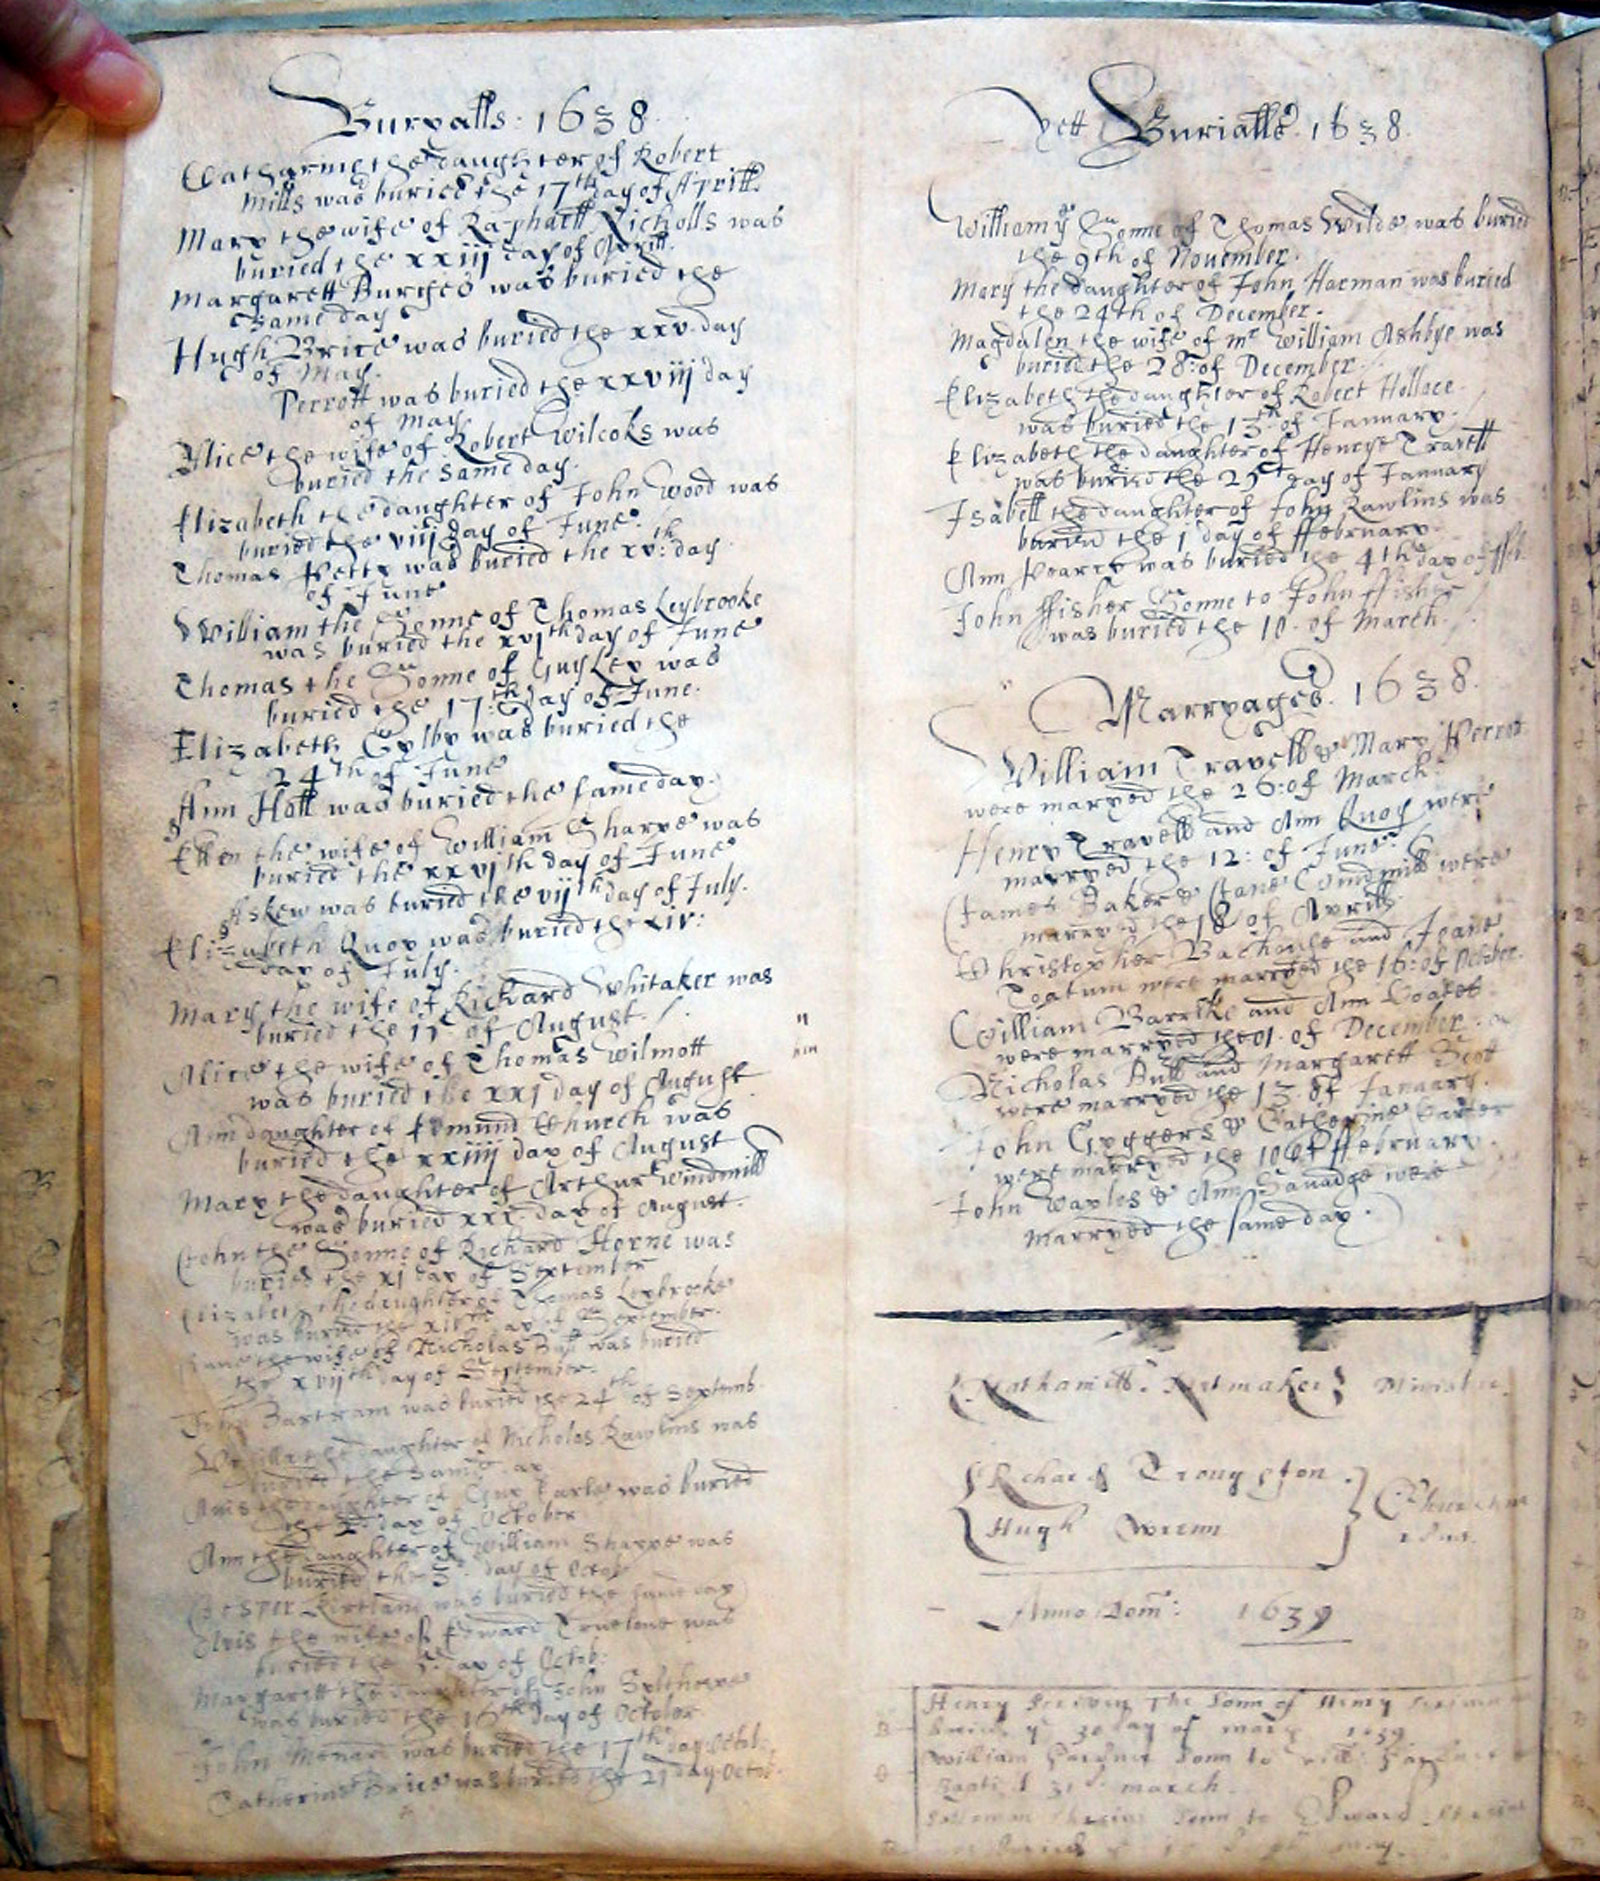 Buryalls: 1638.
Catharine the daughter of Robert
Mills was buried the 17th day of Aprill.
Mary the wife of Raphaell Nicholls was
buried the xxiij day of Aprill.
Margarett Burges was buried the
same day
Hugh Brice was buried the xxv. day
of May.
Perrott was buried the xxviij day
of May
Alice the wife of Robert Wilcoks was
buried the same day.
Elizabeth the daughter of John Wood was
buried the viij day of June.
Thomas Petty was buried the xv:th day
of June
William the Sonne of Thomas Leybrooke
was buried the xvjth day of June
Thomas the Sonne of Guy Ley was
buried the 17:th day of June.
Elizabeth Gylby was buried the
24th of June
Ann Hall was buried the same day.
Ellen the wife of William Sharpe was
buried the xxvjth day of June
Askew was buried the vijth day of July.
Elizabeth Quoy was buried the xiv:
day of July.
Mary the wife of Richard Whitaker was
buried the of August.
Alice the wife of Thomas Wilmott
was buried the xxj day of August
Ann daughter of Edmund Church was
buried the xxiiij day of August
Mary the daughter of Arthur Windmill
was buried xxx. day of August.
John the Sonne of Richard Horne was
buried the xj day of September
Elizabeth the daughter of Thomas Leybrooke
was buried the of September.
the wife of Nicholas Bull was buried
the xvijth day of September.
John Bartram was buried the 24th of Septemb.
the daughter of Nicholas Rawlins was
buried the same day
the daughter of Guy Earle was buried
the 2d day of October
Ann the daughter of William Sharpe was
buried the day of Octob
Jesper Kirtland was buried the same day
the wife of Edward Truelove was
buried the day of Octob:
Margarett the daughter of John
was buried the 16th day of October
John was buried the 17th day Octob.
Catherine Brice was buried the 21 day Octo
yett Burialls. 1638.
William ye Sonne of Thomas Wilde was buried
the 9th of November.
Mary the daughter of John Harman was buried
the 24th of December.
Magdalen the wife of mr William Ashbye was
buried the 28: of December.
Elizabeth the daughter of Robert Hollace
was buried the 13th of January.
Elizabeth the daughter of Henrye Travell
was buried the day of January
Isabell the daughter of John Rawlins was
buried the 1 day of ffebruary.
Ann Pearce was buried the 4th day of ffeb.
John ffisher Sonne to John ffisher
was buried the 10. of March.
Marryages. 1638.
William Travell & Mary Perrot
were maryed the 26: of March.
Henry Travell and Ann Quoy were
marryed the 12: of June.
James Baker & Jane Windmill were
marryed the 18 of Aprill.
Christopher and Joane
Toatum were marryed the 16: of October.
William and Ann Coates
were marryed the 01. of December.
Nicholas Bull and Margarett Scott
were marryed the 13. of January.
John Gyggers & Catherine Carter
were marryed the 10 of ffebruary.
John Waples & Ann Savadge were
marryed the same day.
Nathaniell Minister.
Richard Troughton
Hugh Wrenn
Anno Dom: 1639
Henry Scriven The Sonn of Henry
ye 30 day of 1639
William Sonn to
31 march.
Sonn to Edward
may